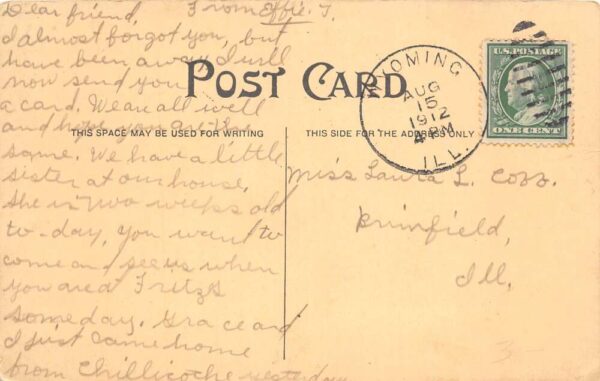 Dear friend, From Effie. T.
I almost forgot you, but
have been away. I will
now send you
a card. We are all well
and hope you are the
same. We have a little
sister at our house.
She is two weeks old
to-day, you want to
come and see us when
you are at Fritz's
someday. Grace and
I just came home
from Chillicothe yesterday
POST CARD
THIS SPACE MAY BE USED FOR WRITING
THIS SIDE FOR THE ADDRESS ONLY
WYOMING
AUG
15
1912
4 PM
ILL.
U.S. POSTAGE
ONE CENT
Miss Laura L. Cobb.
Brimfield,
Ill.
3